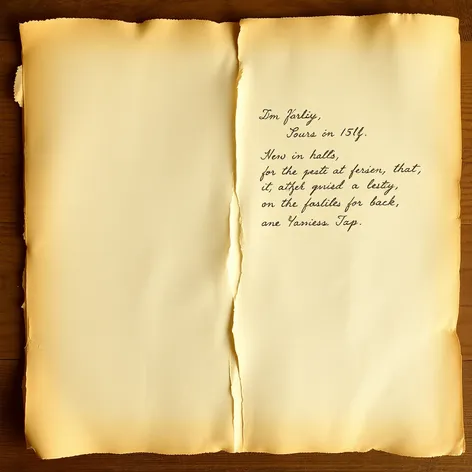 Dm Yarliy,
Sours in 151f.
New in halls,
for the pesti at fersen, that,
it, ather gursd a lesty,
on the fasliles for back,
ane Yamiess. Tap.